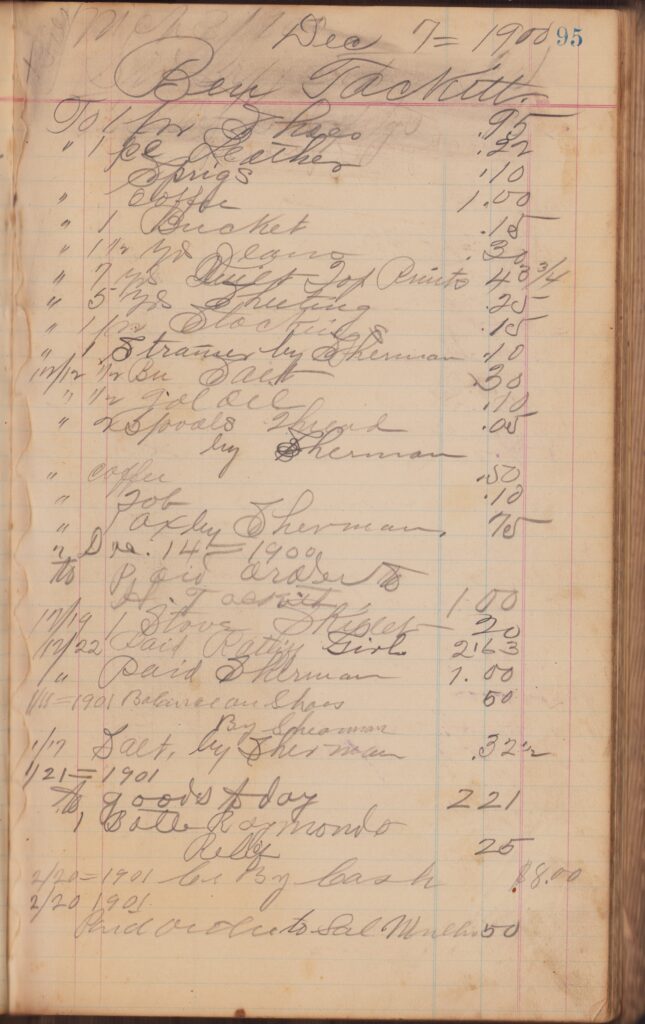 Dec 7= 1900 95
Ben Tackitt
To 1 pr Shoes .95
" 1 pc Leather .22
Sprigs .10
" Coffee 1.00
" 1 Bucket .15
" 1 1/2 yds Jeans .30
" 7 yds Quilt Top Prints 43 3/4
" 5 Yds Sheeting .25
" 1 pr Stockings .15
" 1 Strainer by Sherman .10
12/12 1/2 Bu Salt .30
" 1/2 gal oil .10
" 2 Spools Thread .05
by Sherman
" coffee .50
" Tob .10
" ax by Sherman. 75
" Dec. 14= 1900
to Paid order to
Tackitt 1.00
12/19 1 Stove Skillet 20
12/22 Paid Girl 2163
" Paid Sherman 1.00
1/11=1901 Balance on Shoes 50
By Sherman
1/17 Salt, by Sherman .32 1/2
1/21=1901
to goods today 221
1 Bottle Raymonds
25
2/20=1901 Cr By Cash $8.00
2/20 1901
Paid order to Sal 50